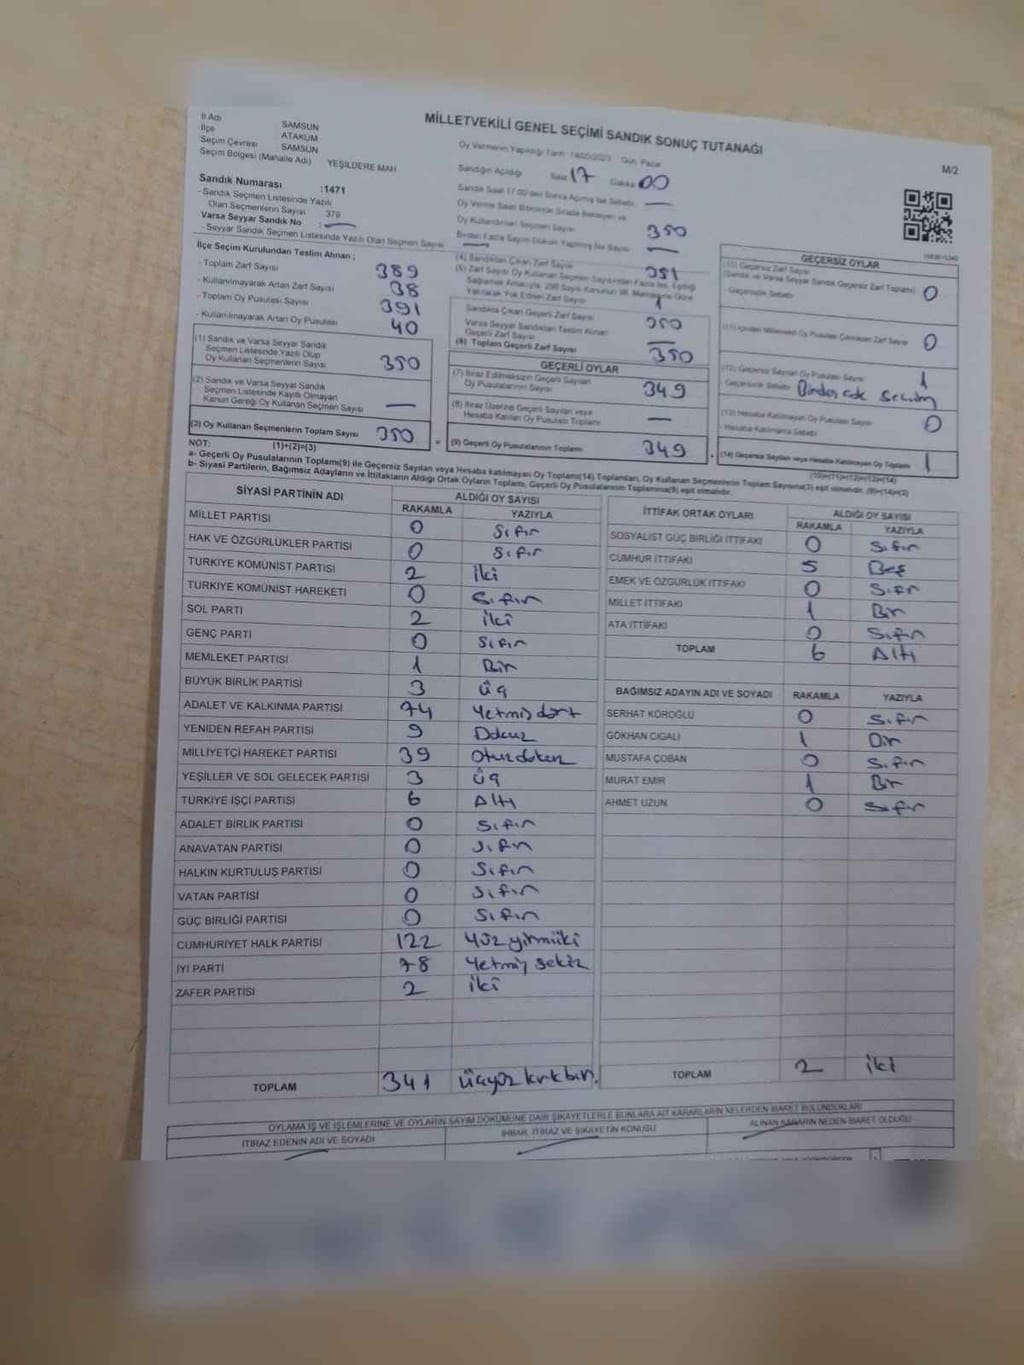 MİLLETVEKİLİ GENEL SEÇİMİ SANDIK SONUÇ TUTANAĞI
M/2
İl Adı SAMSUN
İlçe ATAKUM
Seçim Çevresi SAMSUN
Seçim Bölgesi (Mahalle Adı) YEŞİLDERE MAH
Sandık Numarası :1471
- Sandık Seçmen Listesinde Yazılı
Olan Seçmenlerin Sayısı 379
Varsa Seyyar Sandık No :
- Seyyar Sandık Seçmen Listesinde Yazılı Olan Seçmen Sayısı
Oy Vermenin Yapıldığı Tarih 14/05/2023 Gün Pazar
Sandığın Açıldığı Saat 17 Dakika 00
Oy Kullandırılan Seçmen Sayısı 350
İlçe Seçim Kurulundan Teslim Alınan ;
- Toplam Zarf Sayısı 389
- Kullanılmayarak Artan Zarf Sayısı 38
- Toplam Oy Pusulası Sayısı 391
- Kullanılmayarak Artan Oy Pusulası 40
(1) Sandık ve Varsa Seyyar Sandık
Seçmen Listesinde Yazılı Olup
Oy Kullanan Seçmenlerin Sayısı 350
(2) Sandık ve Varsa Seyyar Sandık
Seçmen Listesinde Kayıtlı Olmayan
Kanun Gereği Oy Kullanan Seçmen Sayısı —
(3) Oy Kullanan Seçmenlerin Toplam Sayısı 350
(1)+(2)=(3)
(4) Sandıktan Çıkan Zarf Sayısı 351
1
Sandıkta Çıkan Geçerli Zarf Sayısı 350
Varsa Seyyar Sandıktan Teslim Alınan
Geçerli Zarf Sayısı —
(6) Toplam Geçerli Zarf Sayısı 350
GEÇERLİ OYLAR
(7) İtiraz Edilmeksizin Geçerli Sayılan
Oy Pusulalarının Sayısı 349
(8) İtiraz Üzerine Geçerli Sayılan veya
Hesaba Katılan Oy Pusulası Toplamı —
(9) Geçerli Oy Pusulalarının Toplamı 349
GEÇERSİZ OYLAR
(10) Geçersiz Zarf Sayısı
(Sandık ve Varsa Seyyar Sandık Geçersiz Zarf Toplamı) 0
Geçersizlik Sebebi
0
(12) Geçersiz Sayılan Oy Pusulası Sayısı 1
Geçersizlik Sebebi Birden çok seçim
(13) Hesaba Katılmayan Oy Pusulası Sayısı 0
- Hesaba Katılmama Sebebi
(14) Geçersiz Sayılan veya Hesaba Katılmayan Oy Toplamı 1
(10)+(11)+(12)+(13)=(14)
NOT:
a- Geçerli Oy Pusulalarının Toplamı(9) ile Geçersiz Sayılan veya Hesaba katılmayan Oy Toplamı(14) Toplamları, Oy Kullanan Seçmenlerin Toplam Sayısına(3) eşit olmalıdır. (9)+(14)=(3)
b- Siyasi Partilerin, Bağımsız Adayların ve İttifakların Aldığı Ortak Oyların Toplamı, Geçerli Oy Pusulalarının Toplamına(9) eşit olmalıdır.
SİYASİ PARTİNİN ADI ALDIĞI OY SAYISI
RAKAMLA YAZIYLA
MİLLET PARTİSİ 0 Sıfır
HAK VE ÖZGÜRLÜKLER PARTİSİ 0 Sıfır
TÜRKİYE KOMÜNİST PARTİSİ 2 İki
TÜRKİYE KOMÜNİST HAREKETİ 0 Sıfır
SOL PARTİ 2 İki
GENÇ PARTİ 0 Sıfır
MEMLEKET PARTİSİ 1 Bir
BÜYÜK BİRLİK PARTİSİ 3 Üç
ADALET VE KALKINMA PARTİSİ 74 Yetmişdört
YENİDEN REFAH PARTİSİ 9 Dokuz
MİLLİYETÇİ HAREKET PARTİSİ 39 Otuzdokuz
YEŞİLLER VE SOL GELECEK PARTİSİ 3 Üç
TÜRKİYE İŞÇİ PARTİSİ 6 Altı
ADALET BİRLİK PARTİSİ 0 Sıfır
ANAVATAN PARTİSİ 0 Sıfır
HALKIN KURTULUŞ PARTİSİ 0 Sıfır
VATAN PARTİSİ 0 Sıfır
GÜÇ BİRLİĞİ PARTİSİ 0 Sıfır
CUMHURİYET HALK PARTİSİ 122 Yüz yirmiiki
İYİ PARTİ 78 Yetmiş sekiz
ZAFER PARTİSİ 2 İki
TOPLAM 341 Üçyüz kırkbir.
İTTİFAK ORTAK OYLARI ALDIĞI OY SAYISI
RAKAMLA YAZIYLA
SOSYALİST GÜÇ BİRLİĞİ İTTİFAKI 0 Sıfır
CUMHUR İTTİFAKI 5 Beş
EMEK VE ÖZGÜRLÜK İTTİFAKI 0 Sıfır
MİLLET İTTİFAKI 1 Bir
ATA İTTİFAKI 0 Sıfır
TOPLAM 6 Altı
BAĞIMSIZ ADAYIN ADI VE SOYADI RAKAMLA YAZIYLA
SERHAT KÖROĞLU 0 Sıfır
GÖKHAN CIGALI 1 Bir
MUSTAFA ÇOBAN 0 Sıfır
MURAT EMİR 1 Bir
AHMET UZUN 0 Sıfır
TOPLAM 2 İki
OYLAMA İŞ VE İŞLEMLERİNE VE OYLARIN SAYIM DÖKÜMÜNE DAİR ŞİKAYETLERLE BUNLARA AİT KARARLARIN NELERDEN İBARET BULUNDUKLARI
İTİRAZ EDENİN ADI VE SOYADI
İHBAR, İTİRAZ VE ŞİKAYETİN KONUSU
ALINAN KARARIN NEDEN İBARET OLDUĞU